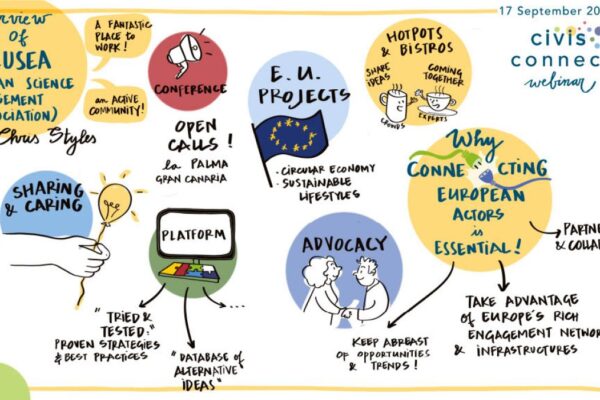 17 September 20
civis
connec
webinar
rview
of
USEA
AN SCIENCE
GEMENT
CIATION)
Chris Styles
A FANTASTIC
PLACE TO
WORK!
an ACTIVE
COMMUNITY!
CONFERENCE
OPEN
CALLS!
la PALMA
GRAN CANARIA
E.U.
PROJECTS
· CIRCULAR ECONOMY
· SUSTAINABLE
LIFESTYLES
HOTPOTS
& BISTROS
SHARE
IDEAS
COMING
TOGETHER
CROWDS
EXPERTS
Why
CONNECTING
EUROPEAN
ACTORS
is
ESSENTIAL!
PARTNE
& COLLA
TAKE ADVANTAGE
OF EUROPE'S RICH
ENGAGEMENT NETWOR
& INFRASTRUCTURES
KEEP ABREAST
OF OPPORTUNITIES
& TRENDS!
SHARING
& CARING
PLATFORM
"TRIED &
TESTED:"
PROVEN STRATEGIES
& BEST PRACTICES
"DATABASE OF
ALTERNATIVE
IDEAS"
...
ADVOCACY